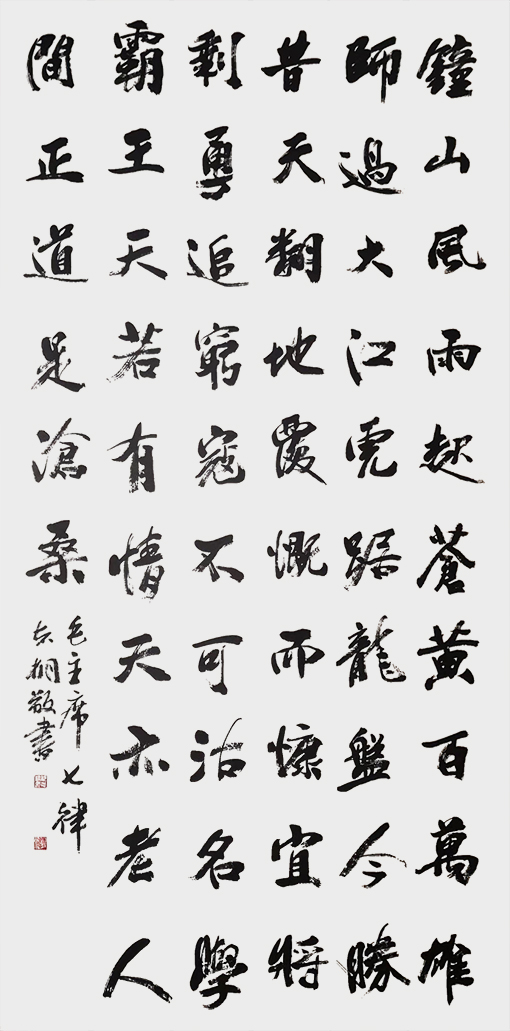 鐘山風雨起蒼黄百萬雄
師過大江虎踞龍盤今勝
昔天翻地覆慨而慷宜將
剩勇追窮寇不可沽名學
霸王天若有情天亦老人
間正道是滄桑
毛主席七律
敬書